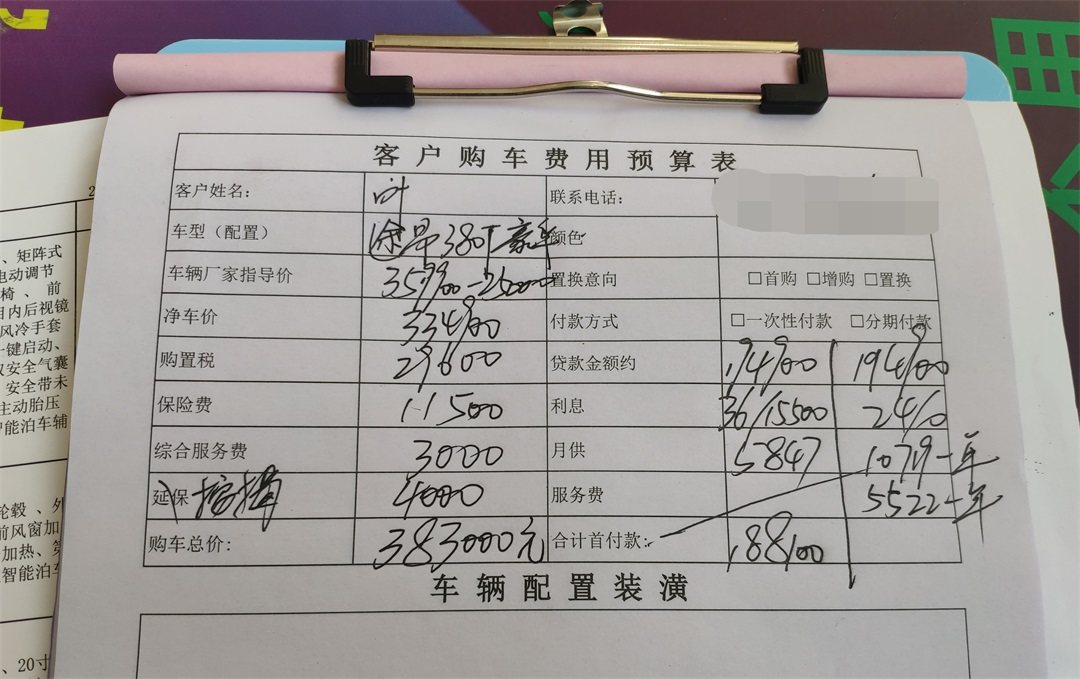 客户购车费用预算表
客户姓名: 叶 联系电话:
车型（配置） 途昂380T豪华 颜色
车辆厂家指导价 359900-25000 置换意向 □首购 □增购 □置换
净车价 334900 付款方式 □一次性付款 □分期付款
购置税 29600 贷款金额约 194900 194900
保险费 11500 利息 36/15500
综合服务费 3000 月供 5847
延保 4000 服务费 5522一年
购车总价: 383000元 合计首付款: 188100
车辆配置装潢
、矩阵式
电动调节
椅、前
目内后视镜
风冷手套
一键启动、
双安全气囊
安全带未
主动胎压
智能泊车辅
轮毂、外
前风窗加
加热、第
智能泊车
、20寸